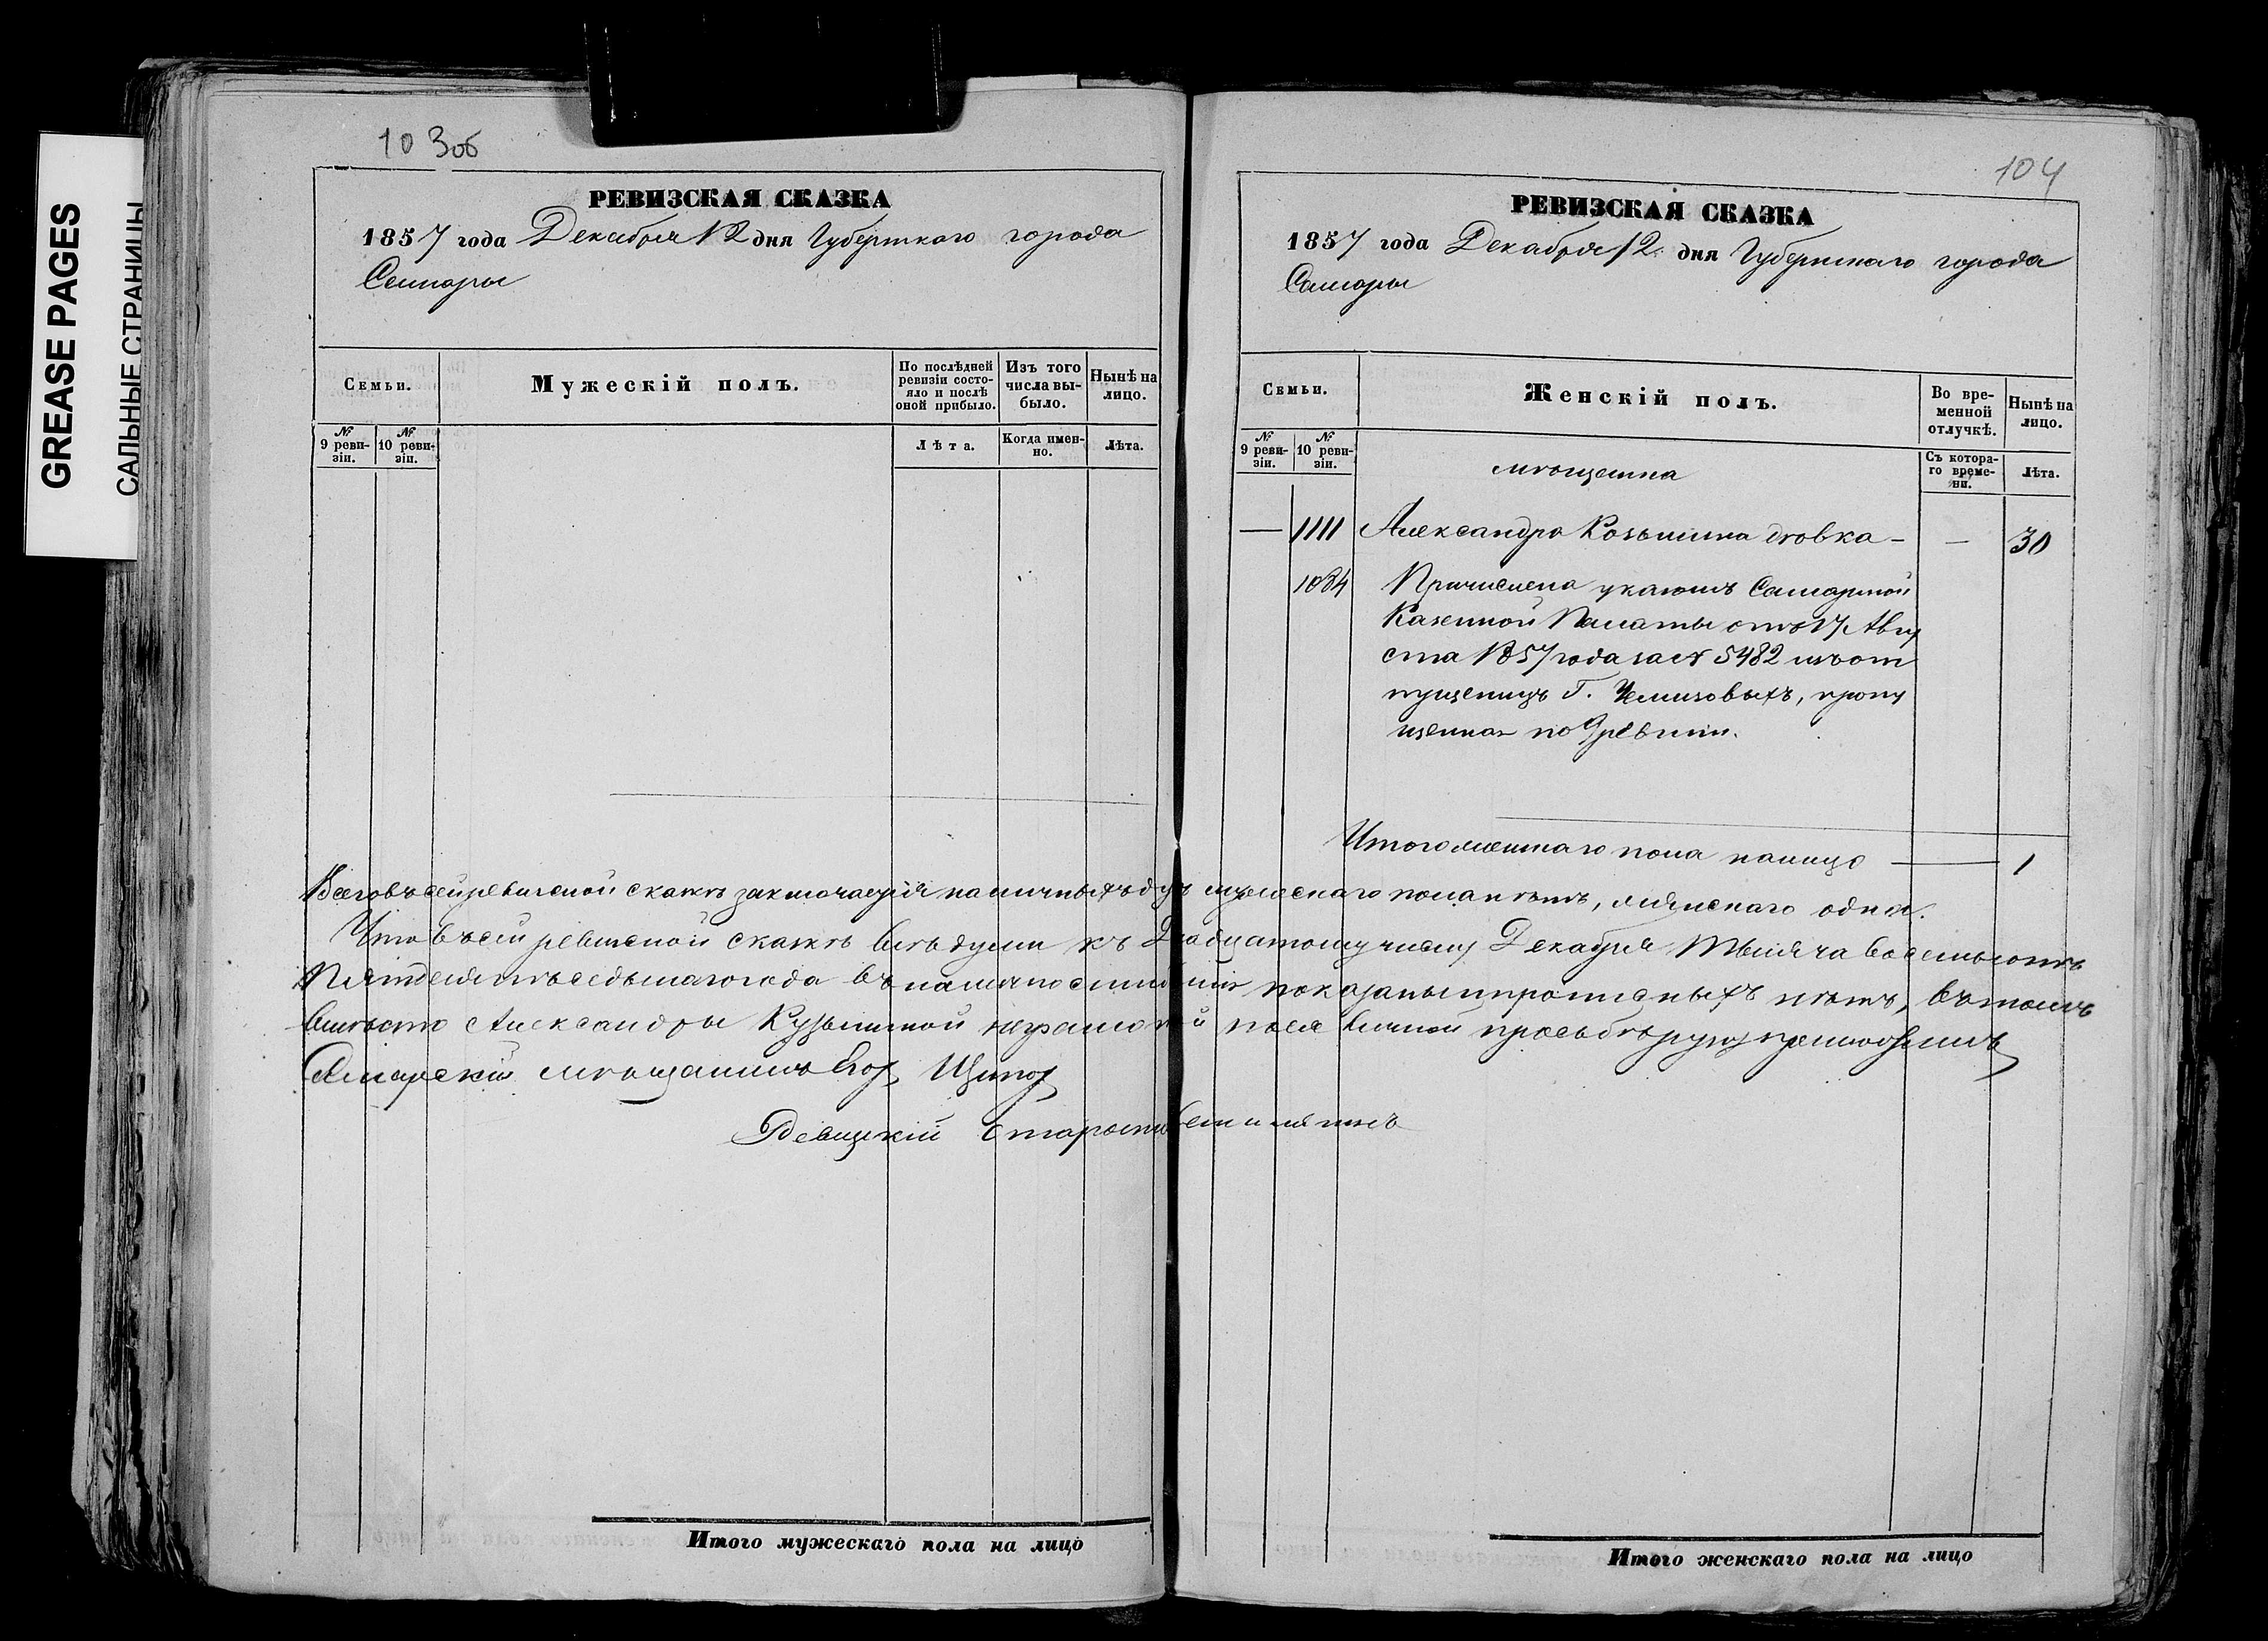 GREASE PAGES
САЛЬНЫЕ СТРАНИЦЫ
103об
РЕВИЗСКАЯ СКАЗКА
1857 года Декабря 12 дня Губернскаго города
Самары
Семьи.
Мужескій полъ.
По послѣдней ревизіи состояло и послѣ оной прибыло.
Изъ того числа выбыло.
Нынѣ на лицо.
№ 9 ревизіи.
№ 10 ревизіи.
Лѣта.
Когда именно.
Лѣта.
104
РЕВИЗСКАЯ СКАЗКА
1857 года Декабря 12 дня Губернскаго города
Самары
Семьи.
Женскій полъ.
Во временной отлучкѣ.
Нынѣ на лицо.
№ 9 ревизіи.
№ 10 ревизіи.
Съ котораго времени.
Лѣта.
мѣщанка
— 1111 Александра Козьмина дѣвка — — 30
1084 Причислена указомъ Самарской
Казенной Палаты отъ 17 Авгу
ста 1857 года за № 5482 изъ от
пущеницъ Г. пропу
щенная по 9 ревизіи.
Итого женскаго пола налицо — 1
Всего въ сей ревизской сказкѣ заключается наличныхъ душ мужескаго пола нѣтъ, женскаго одна.
Что въ сей ревизской сказкѣ всѣ души къ Двадцатому числу Декабря Тысяча восемьсотъ
Пятдесятъ седьмаго года въ наличности показаны и прописныхъ нѣтъ, въ томъ
вмѣсто Александры Кузьминой неграмотной по ея личной прозьбѣ руку приложилъ
Самарскій мѣщанинъ
Староста
Итого мужескаго пола на лицо
Итого женскаго пола на лицо